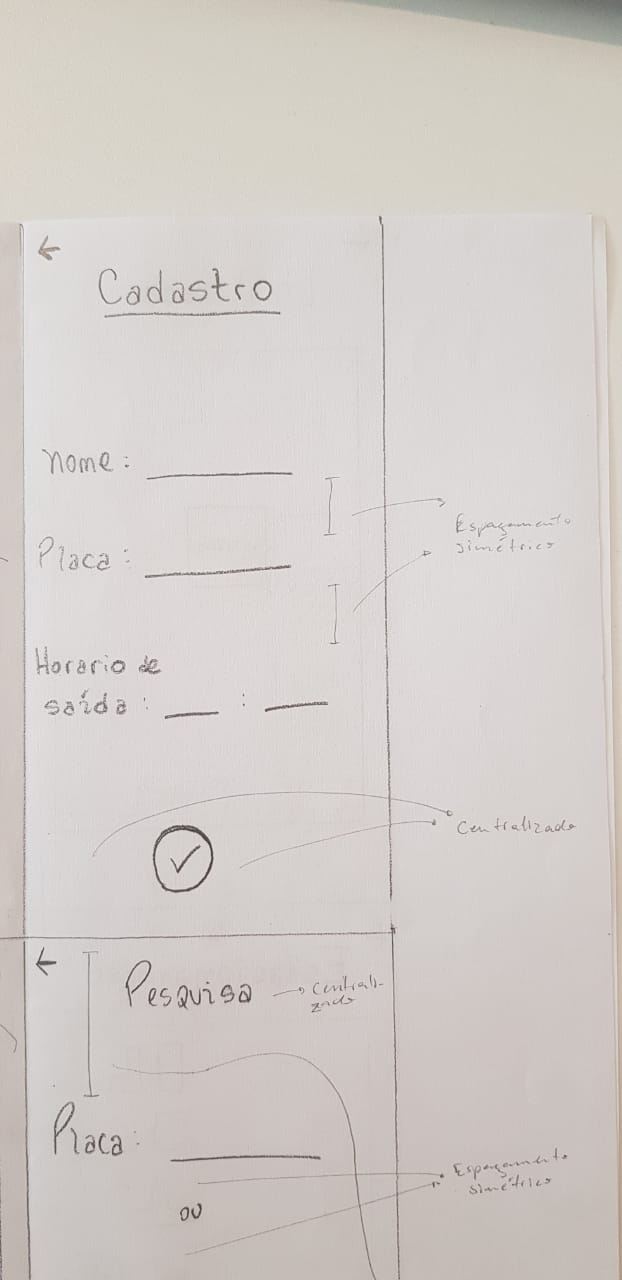 ←
Cadastro
Nome :
Placa :
Espaçamento
simétrico
Horario de
saída : __ : __
✓
Centralizado
←
Pesquisa
Centrali-
zado
Placa :
Espaçamento
simétrico
ou